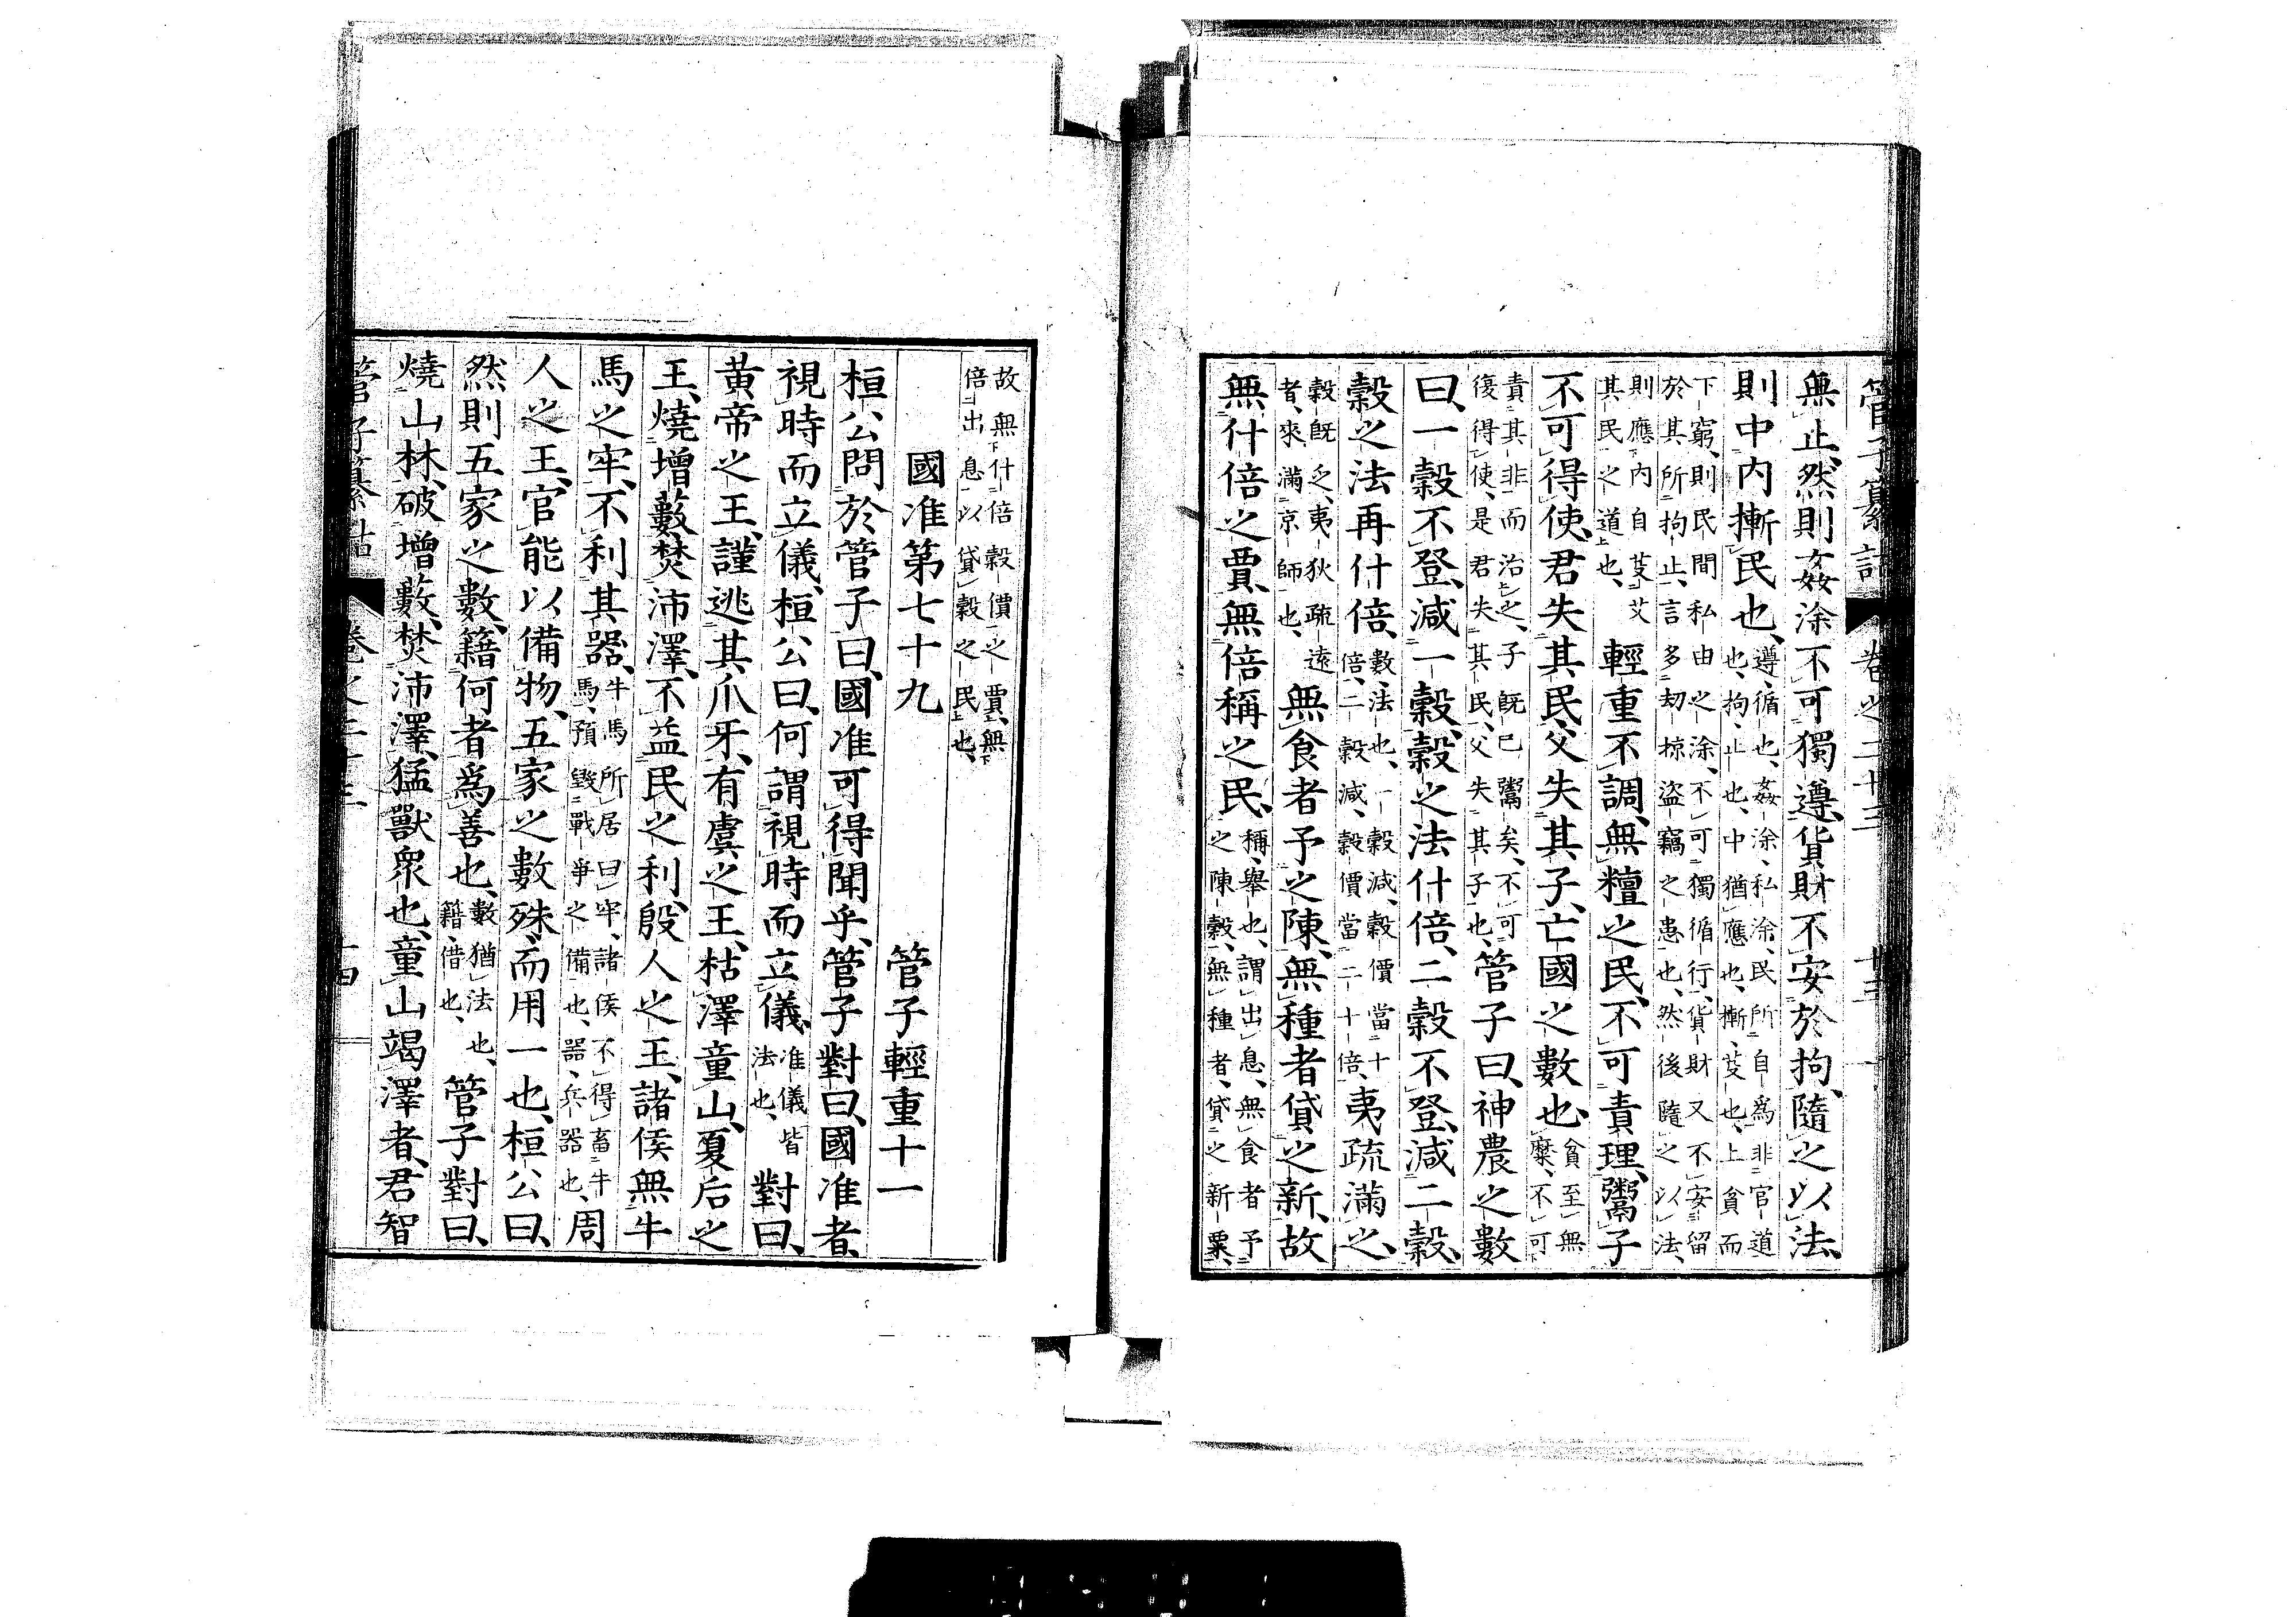 管子纂詁 卷之二十三 廿三
無止、然則姦涂不可獨遵、貨財不安於拘、隨之以法、
則中内摲民也、遵、循也、姦涂、私涂、民所自爲非官道
也、拘、止也、中猶應也、摲、芟也、上貧而
下窮、則民間私由之涂、不可獨循行、貨財又不安留
於其所拘止、言多劫掠盜竊之患也、然後隨之以法、
則應内自芟艾
其民之道也、輕重不調、無糧之民、不可責理、鬻子
不可得使、君失其民、父失其子、亡國之數也、貧至無
糜、不可
責其非而治之、子既已鬻矣、不可
復得使、是君失其民、父失其子也、管子曰、神農之數
曰、一穀不登、減一穀、穀之法什倍、二穀不登、減二穀、
穀之法再什倍、數、法也、一穀減、穀價當十
倍、二穀減、穀價當二十倍、夷疏滿之、
穀既乏、夷狄疏遠
者、來滿京師也、無食者予之陳、無種者貸之新、故
無什倍之賈、無倍稱之民、稱、舉也、謂出息、無食者予
之陳穀、無種者、貸之新粟、
故無什倍穀價之賈、無
倍出息以貸穀之民也、
國准第七十九 管子輕重十一
桓公問於管子曰、國准可得聞乎、管子對曰、國准者、
視時而立儀、桓公曰、何謂視時而立儀、准儀皆
法也、對曰、
黃帝之王、謹逃其爪牙、有虞之王、枯澤童山、夏后之
王、燒增藪、焚沛澤、不益民之利、殷人之王、諸侯無牛
馬之牢、不利其器、牛馬所居曰牢、諸侯不得畜牛
馬、預毀戰爭之備也、器、兵器也、周
人之王、官能以備物、五家之數殊、而用一也、桓公曰、
然則五家之數、籍何者爲善也、數猶法也、
籍、借也、管子對曰、
燒山林、破增藪、焚沛澤、猛獸衆也、童山竭澤者、君智
管子纂詁 卷之二十三 廿四